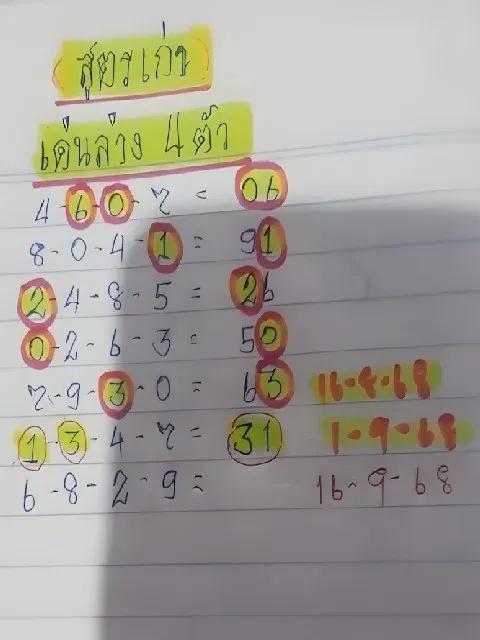 สูตรเก่า
เด่นล่าง 4 ตัว
4-6-0-7 = 06
8-0-4-1 = 91
2-4-8-5 = 26
0-2-6-3 = 50
7-9-3-0 = 63 16-8-68
1-3-4-7 = 31 1-9-68
6-8-2-9 = 16-9-68